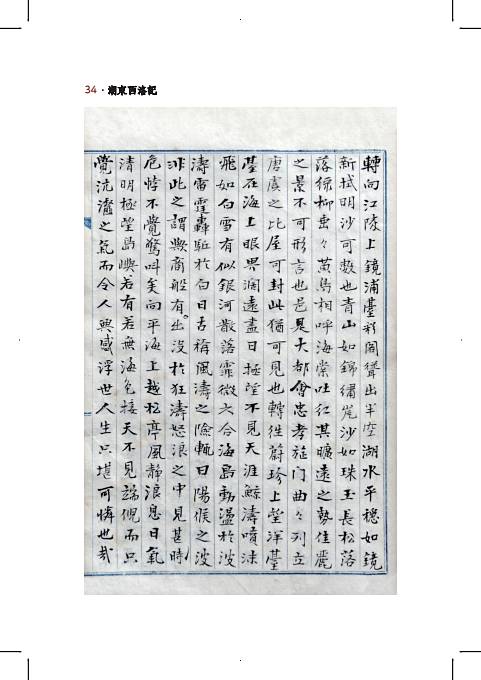 34 · 湖東西洛記
轉向江陵上鏡浦臺彩閣聳出半空湖水平穩如鏡
新拭明沙可数也青山如錦繡崑沙如珠玉長松落
落綠柳垂々黃鳥相呼海棠吐紅其曠遠之勢佳麗
之景不可形言也邑是大都會忠孝旌門曲々列立
唐虞之比屋可封此猶可見也轉徃蔚珍上望洋臺
臺在海上眼界濶遠盡日極望不見天涯鯨濤噴沫
飛如白雪有似銀河散落霏微六合海島動盪於波
濤雷霆轟駈於白日古稱風濤之險輒曰陽侯之波
非此之謂歟商船有出没於狂濤怒浪之中見甚時
危悖不覺驚呌矣向平海上越松亭風靜浪息日氣
清明極望島嶼若有若無海色接天不見端倪而只
覺沆瀣之氣而令人興感浮世人生只堪可憐也哉